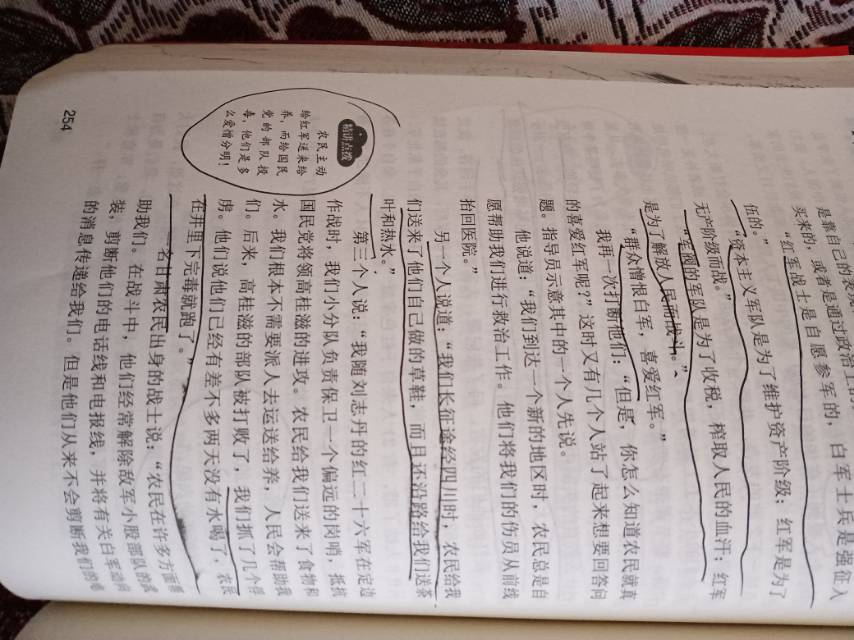 是靠自己的表现
买来的，或者是通过政治上的
“红军战士是自愿参军的，白军士兵是强征入
伍的。”
“资本主义军队是为了维护资产阶级；红军是为了
无产阶级而战。”
“军阀的军队是为了收税，榨取人民的血汗；红军
是为了解放人民而战斗。”
“群众憎恨白军，喜爱红军。”
我再一次打断他们：“但是，你怎么知道农民就真
的喜爱红军呢？”这时又有几个人站了起来想要回答问
题。指导员示意其中的一个人先说。
他说道：“我们到达一个新的地区时，农民总是自
愿帮助我们进行救治工作。他们将我们的伤员从前线
抬回医院。”
另一个人说道：“我们长征途经四川时，农民给我
们送来了他们自己做的草鞋，而且还沿路给我们送茶
叶和热水。”
第三个人说：“我随刘志丹的红二十六军在定边
作战时，我们小分队负责保卫一个偏远的岗哨，抵抗
国民党将领高桂滋的进攻。农民给我们送来了食物和
水。我们根本不需要派人去运送给养，人民会帮助我
们。后来，高桂滋的部队被打败了，我们抓了几个俘
虏。他们说他们已经有差不多两天没有水喝了，农民
在井里下完毒就跑了。”
一名甘肃农民出身的战士说：“农民在许多方面帮
助我们。在战斗中，他们经常解除敌军小股部队的武
装，剪断他们的电话线和电报线，并将有关白军动向
的消息传递给我们。但是他们从来不会剪断我们的电
精讲点拨
农民主动
给红军送来给
养，而给国民
党的部队投
毒，他们是多
么爱憎分明！
254